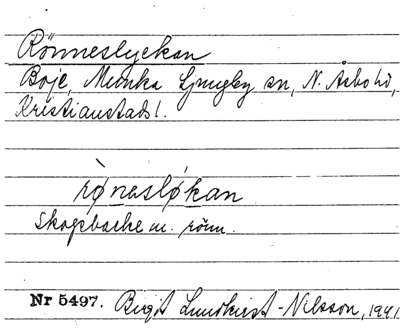 Rönneslyckan
Boje, Munka Ljungby sn, N. Åsbo hd,
Kristianstads l.
rø̀nesløkan
Skogsbacke m. rönn.
Nr 5497. Birgit Lundkvist-Nilsson, 1941